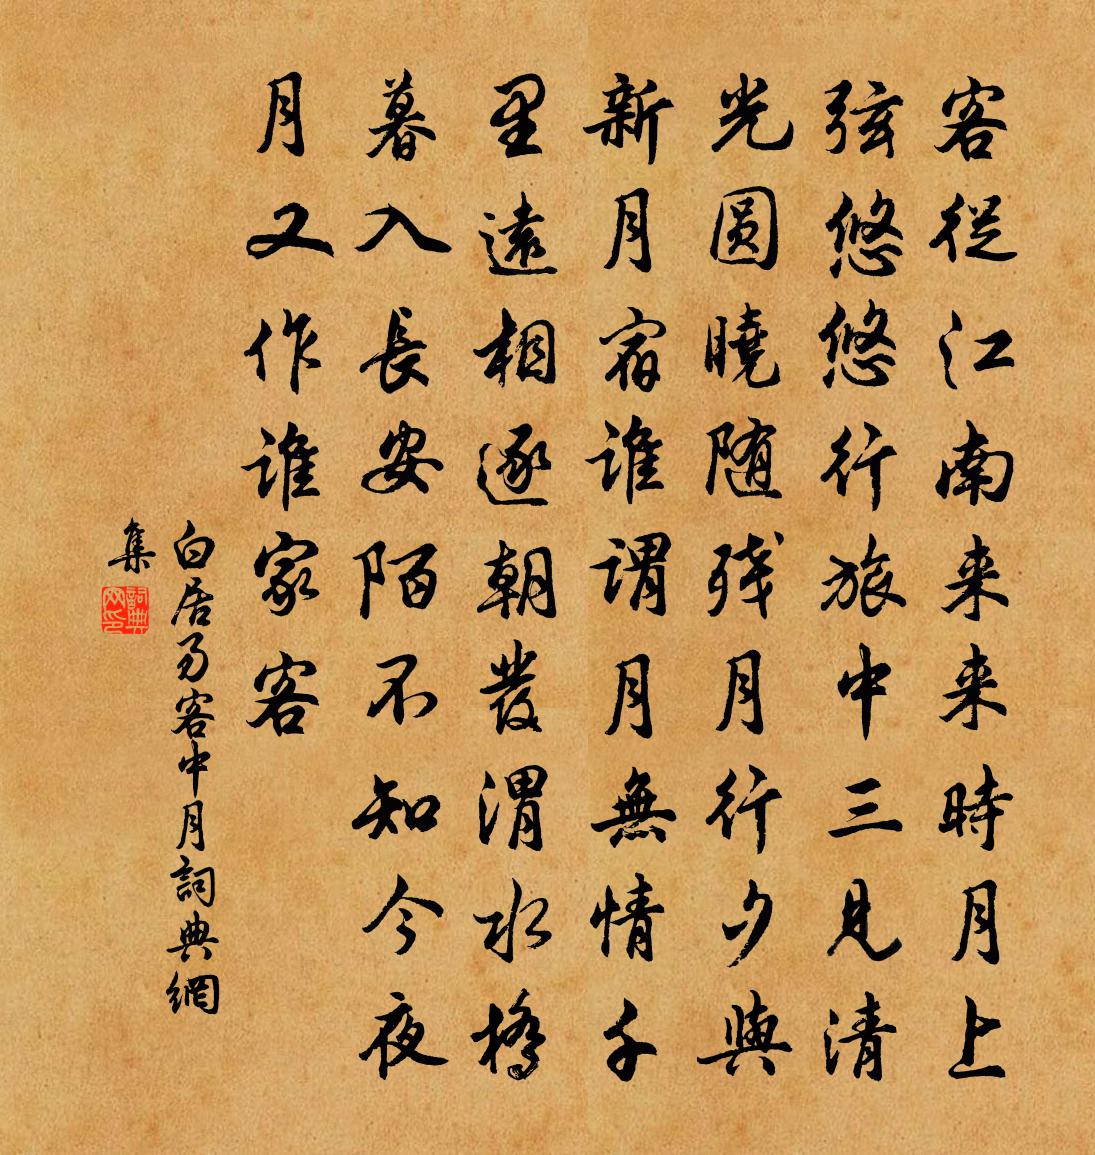 客從江南来来時月上
弦悠悠行旅中三見清
光圆曉随残月行夕與
新月宿谁謂月無情千
里遠相逐朝發渭水橋
暮入長安陌不知今夜
月又作谁家客
白居易客中月詞典網
集
詞典网印